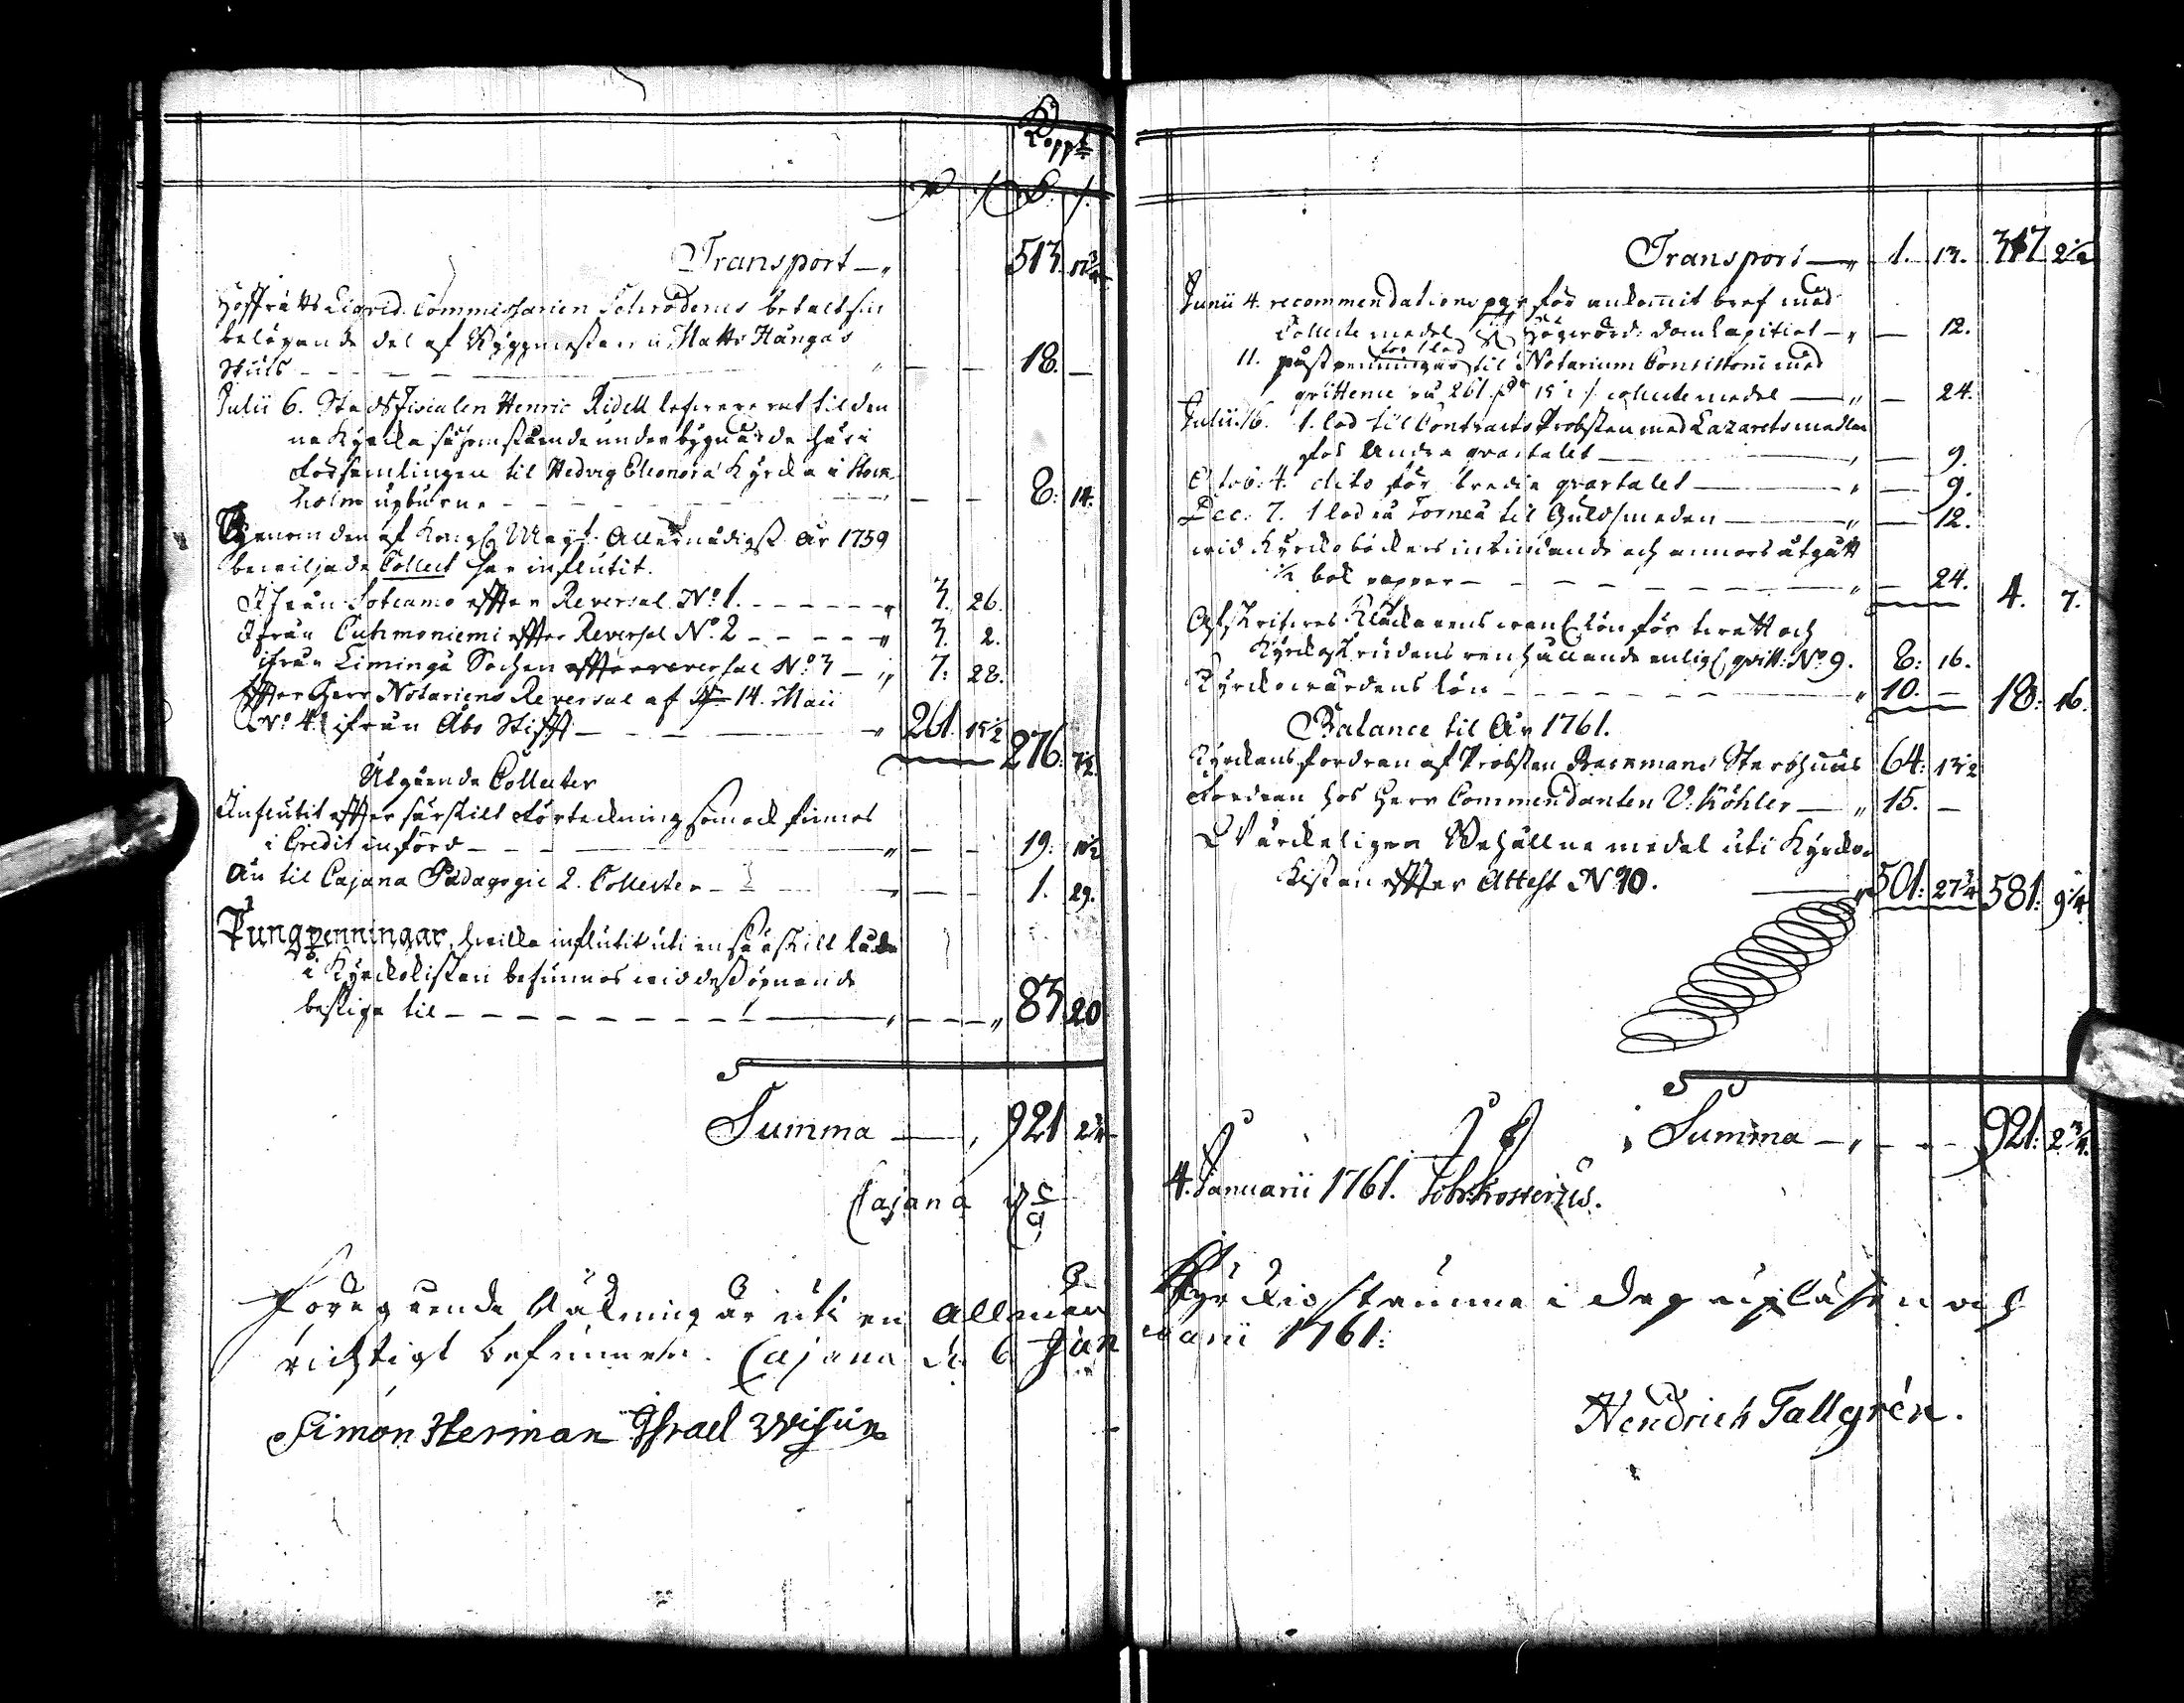 Koppt
Transport — 513. 17 3/4
Hoffrätts Commissarien Schroderus betalt sin
belöpande del af Byggmästaren Matts Hångas
Skuls — — 18. —
Julii 6. Stads Fiscalen Henric Ridell refererat til den
na Kyrcka under byggnad
Församlingen til Hedvig Eleonora Kyrcka i Stock
holm upburne — — 8: 14.
Genom den af Kongl Mayt. Allernådigst År 1759
beviljade Collect har influtit.
Ifrån Sotcamo effter Reversal No 1. 3. 26.
Ifrån Cuhmoniemi effter Reversal No. 2 3. 2.
ifrån Limingå Sochen effter reversal No 3 7: 28.
Effter Herr Notariens Reversal af 14. Maii
No 4. ifrån Åbo Stifft 261. 15 1/2 276: 7 1/2.
Utgående Collecter
Influtit effter särskilt Förteckning som ock finnes
i Credit införd — — 19: 10 1/2
Än til Cajana Pædagogie 2. Collecter — — 1. 29.
Pungpenningar, hvilka influtit uti en särskilt låda
i Kyrckokistan befunnos vid dess öpnande
bestiga til — — 83. 20
Summa — 921 2 3/4
Cajana d
Föregående Räkning är uti en allmän
richtigt befunnen. Cajana d. 6 Jan
Simon Herman Israel Wisur
Transport — 1. 13. 317 2 1/2
Junii 4. recommendations pgr för ankommit bref med
Collecte medel Högvörd: domkapitlet — 12.
för 1 lod
11. påstpenningar til Notarium Consistorii med
qvittence på 261. dr 15 1/2 collecte medel — 24.
Julii 16. 1. lod til Contracts Probsten med Lazarets medlen
för Andra qvartalet — 9.
Octob: 4. dito för tredie qvartalet — 9.
Dec: 7. 1 lod på Torneå til Guldsmeden — 12.
vid Kyrckobökers inbindande och annors åtgått
1/2 bok papper — 24. 4. 7.
Afskrifves Klockarens lön för tvätt och
Kyrckoskrudens renhållande enligt qvitt: No 9. 8: 16.
Kyrckovärdens lön — 10. — 18: 16.
Balance til År 1761.
Kyrckans fordran af Probsten Backmans Sterbhuus 64: 13 1/2
Fordran hos Herr Commendanten V: Köhler — 15. —
Värckeligen Behållne medel uti Kyrcko
Kistan effter Attest No 10. 501: 27 3/4 581: 9 1/4
Summa — 921: 2 3/4.
4. Januarii 1761.
Kyrckiostämma i dag upläsen och
uarii 1761:
Hendrich Tallgrén.